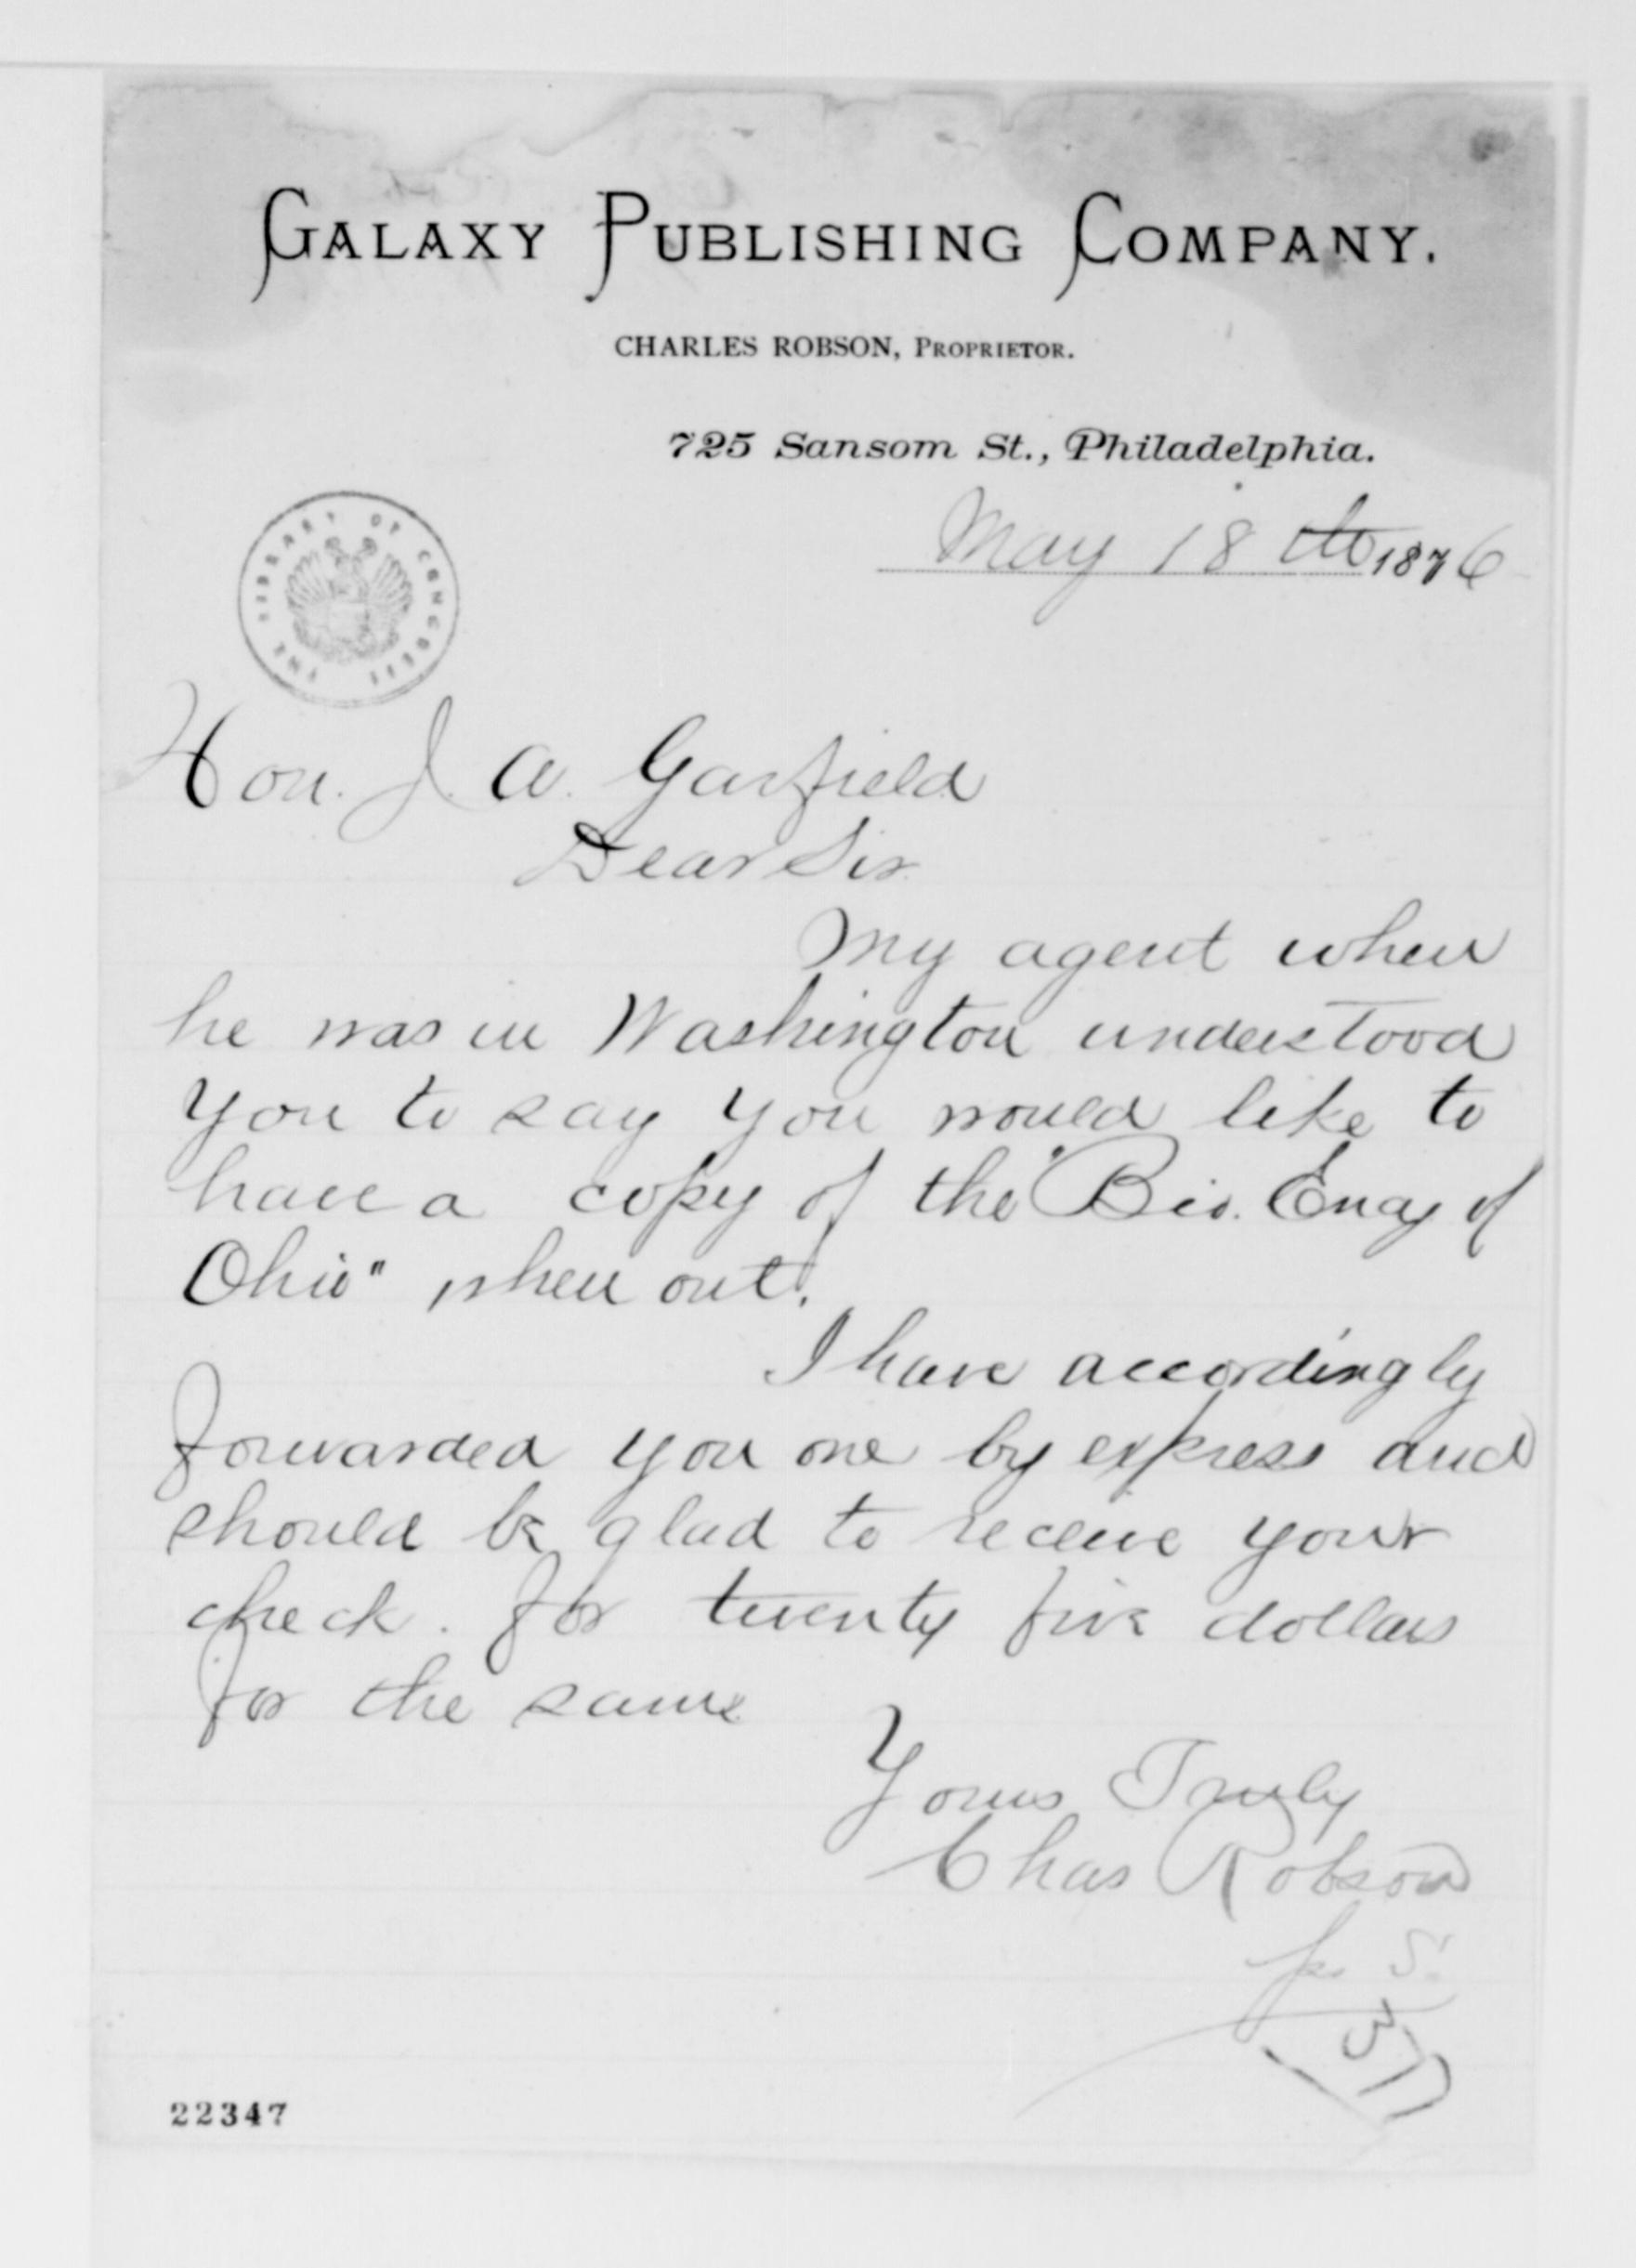 GALAXY PUBLISHING COMPANY.
CHARLES ROBSON, PROPRIETOR.
725 Sansom St., Philadelphia.
May 18th 1876
THE LIBRARY OF CONGRESS
Hon. J. A. Garfield
Dear Sir
My agent when
he was in Washington understood
you to say you would like to
have a copy of the "Bio. Ency of
Ohio" when out.
I have accordingly
forwarded you one by express and
should be glad to receive your
check. for twenty five dollars
for the same
Yours Truly
Chas Robson
S.
22347